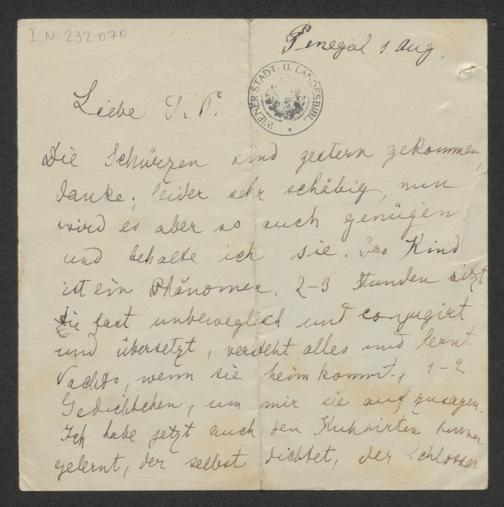 I.N. 232.070
Penegal 1 Aug.
WIENER STADT- U. LANDESBIBL.
Liebe T. T.
Die Schürzen sind gestern gekommen,
danke; leider sehr schäbig, nun
wird es aber so auch genügen
und behalte ich sie. Das Kind
ist ein Phänomen. 2-3 Stunden sitzt
sie fast unbeweglich und conjugirt
und übersetzt, versteht alles und lernt
Nachts, wenn sie heimkommt, 1-2
Gedichtchen, um mir sie aufzusagen.
Ich habe jetzt auch den Kuhhirten kennen
gelernt, der selbst dichtet, der Schlosser